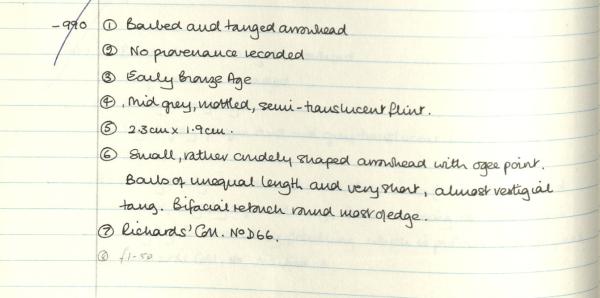 -990 ① Barbed and tanged arrowhead
② No provenance recorded
③ Early Bronze Age
④ Mid grey, mottled, semi-translucent flint.
⑤ 2.3cm x 1.9cm.
⑥ Small, rather crudely shaped arrowhead with ogee point.
Barbs of unequal length and very short, almost vestigial
tang. Bifacial retouch round most of edge.
⑦ Richards' Coll. No D66.
⑧ £1-50